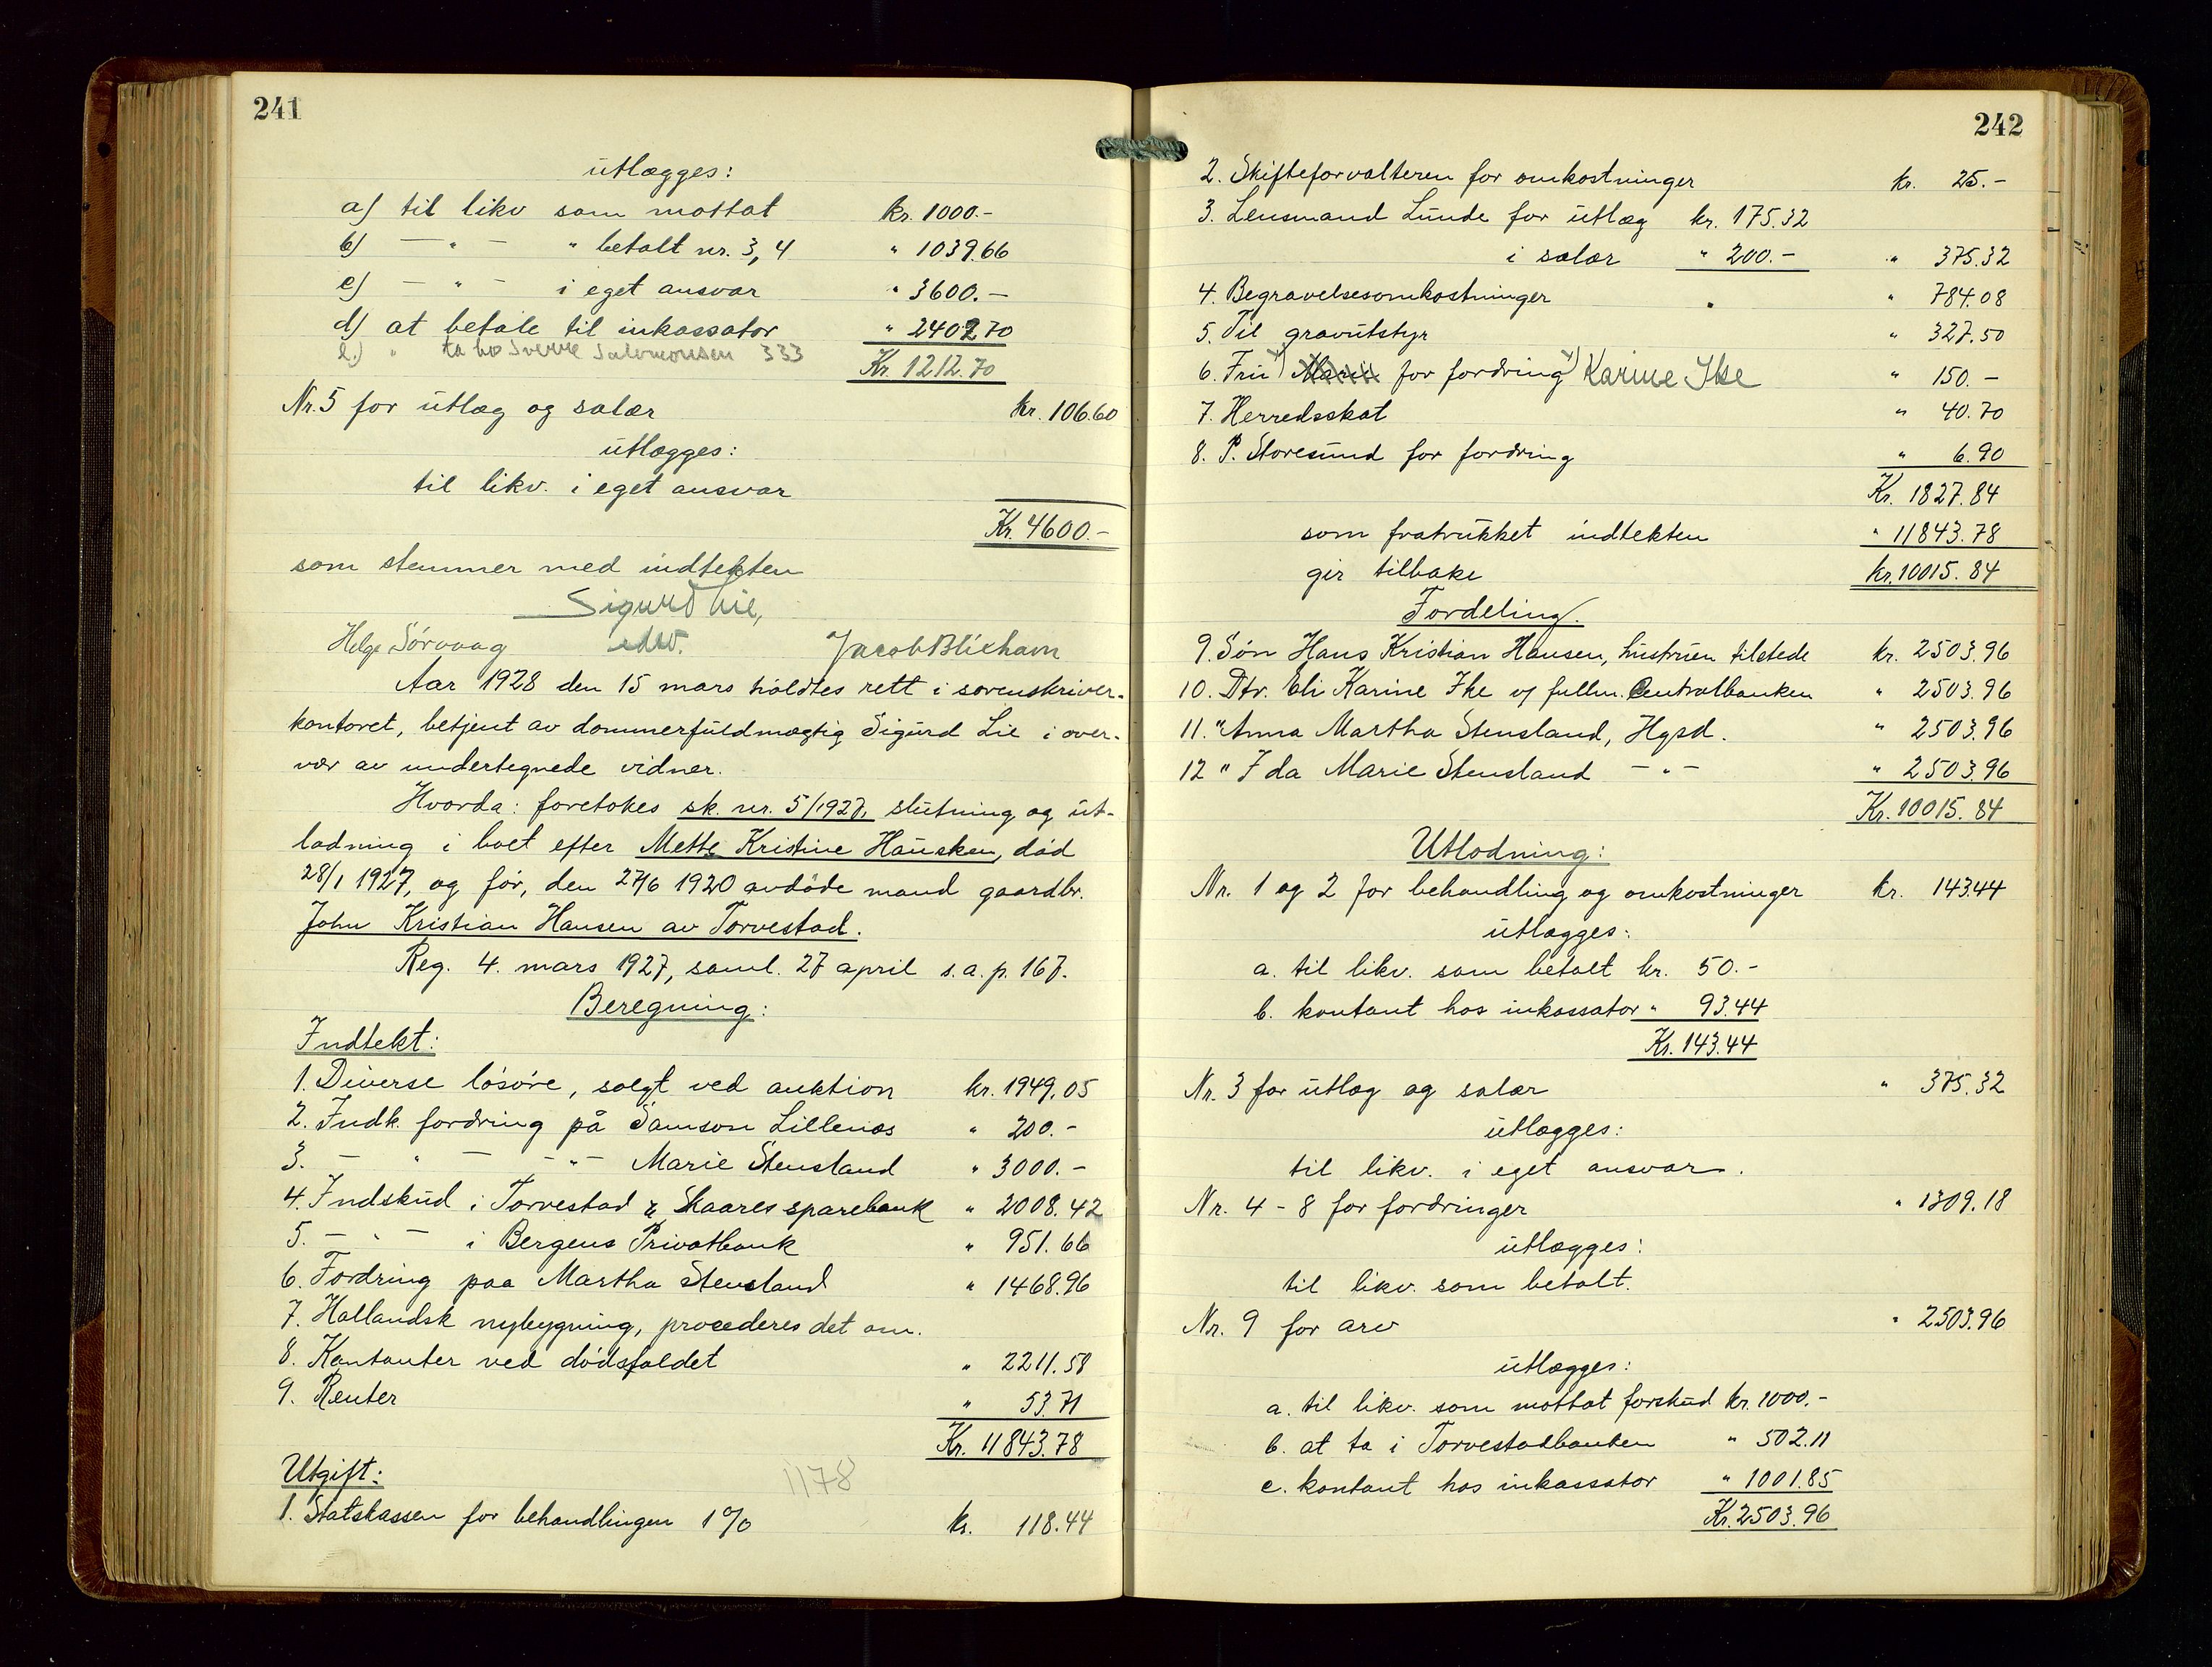 241
utlægges:
a) til likv som mottat kr. 1000.-
b) — " — " betalt nr. 3, 4 " 1039.66
c) — " — i eget ansvar " 3600.—
d) at betale til inkassator " 2402 70
e.) " ta bo Sverre Salomonsen 333
Kr. 1212.70
Nr. 5 for utlæg og salær kr. 106.60
utlægges:
til likv. i eget ansvar
Kr. 4600.-
som stemmer med indtekten
Sigurd Lie,
edw.
Helge Sørvaag Jacob Blixhavn
Aar 1928 den 15 mars holdtes rett i sorenskriver-
kontoret, betjent av dommerfuldmægtig Sigurd Lie i over-
vær av undertegnede vidner.
Hvorda: foretokes sk. nr. 5/1927, slutning og ut-
lodning i boet efter Mette Kristine Hausken, død
28/1 1927, og før, den 27/6 1920 avdøde mand gaardbr.
John Kristian Hansen av Torvestad.
Reg. 4. mars 1927, saml. 27 april s. a. p. 167.
Beregning:
Indtekt:
1. Diverse løsøre, solgt ved auktion kr. 1949.05
2. Indk. fordring på Samson Lillenæs " 200.-
3. — " — — " — Marie Stensland " 3000.-
4. Indskud i Torvestad & Skaares sparebank " 2008.42
5. — " — i Bergens Privatbank " 951.66
6. Fordring paa Martha Stensland " 1468.96
7. Hallandsk nybygning, procederes det om.
8. Kontanter ved dødsfaldet " 2211.58
9. Renter " 53.71
Kr. 11843.78
Utgift:
1178
1. Statskassen for behandlingen 1 % kr. 118.44
242
2. Skifteforvalteren for omkostninger kr. 25.-
3. Lensmand Lunde for utlæg kr. 175.32
i salær " 200.- " 375.32
4. Begravelsesomkostninger " 784.08
5. Til gravutstyr " 327.50
6. Fru for fordring Karine Ike " 150.-
7. Herredsskat " 40.70
8. P. Storesund for fordring " 6.90
Kr. 1827.84
som fratrukket indtekten " 11843.78
gir tilbake kr. 10015.84
Fordeling.
9. Søn Hans Kristian Hansen, hustruen tilstede kr. 2503.96
10. Dtr. Eli Karine Ike v/ fullm. Centralbanken " 2503.96
11. " Anna Martha Stensland, Hgsd. " 2503.96
12 " Ida Marie Stensland — " — " 2503.96
Kr. 10015.84
Utlodning:
Nr. 1 og 2 for behandling og omkostninger kr. 143.44
utlægges:
a. til likv. som betalt kr. 50.-
b. kontant hos inkassator " 93.44
Kr. 143.44
Nr. 3 for utlæg og salær " 375.32
utlægges:
til likv. i eget ansvar.
Nr. 4 - 8 for fordringer " 1309.18
utlægges:
til likv. som betalt.
Nr. 9 for arv " 2503.96
utlægges:
a. til likv. som mottat forskud kr. 1000.-
b. at ta i Torvestadbanken " 502.11
c. kontant hos inkassator " 1001.85
Kr. 2503.96